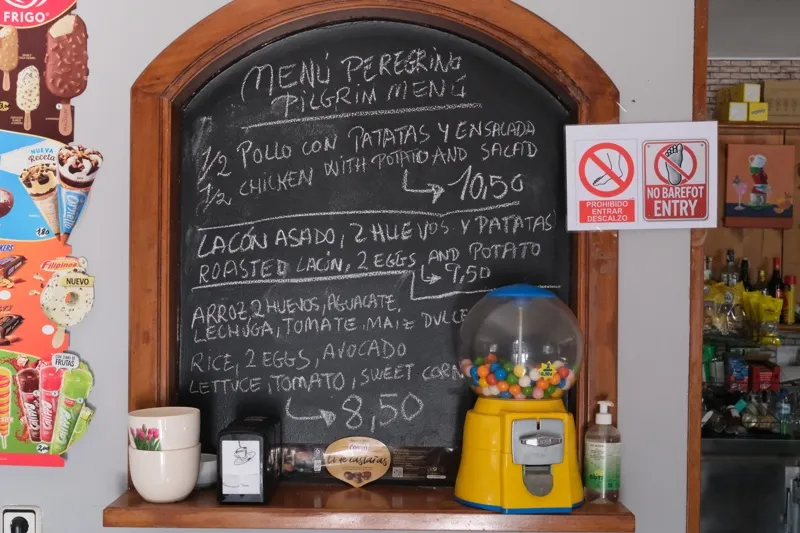 FRIGO
MENÚ PEREGRINO
PILGRIM MENÚ
1/2 POLLO CON PATATAS Y ENSALADA
1/2 CHICKEN WITH POTATO AND SALAD
10,50
LACÓN ASADO, 2 HUEVOS Y PATATAS
ROASTED LACÓN, 2 EGGS AND POTATO
9,50
ARROZ, 2 HUEVOS, AGUACATE,
LECHUGA, TOMATE, MAIZ DULCE
RICE, 2 EGGS, AVOCADO
LETTUCE, TOMATO, SWEET CORN
8,50
PROHIBIDO
ENTRAR
DESCALZO
NO BAREFOT
ENTRY
NUEVA
Receta
Filipinos
NUEVO